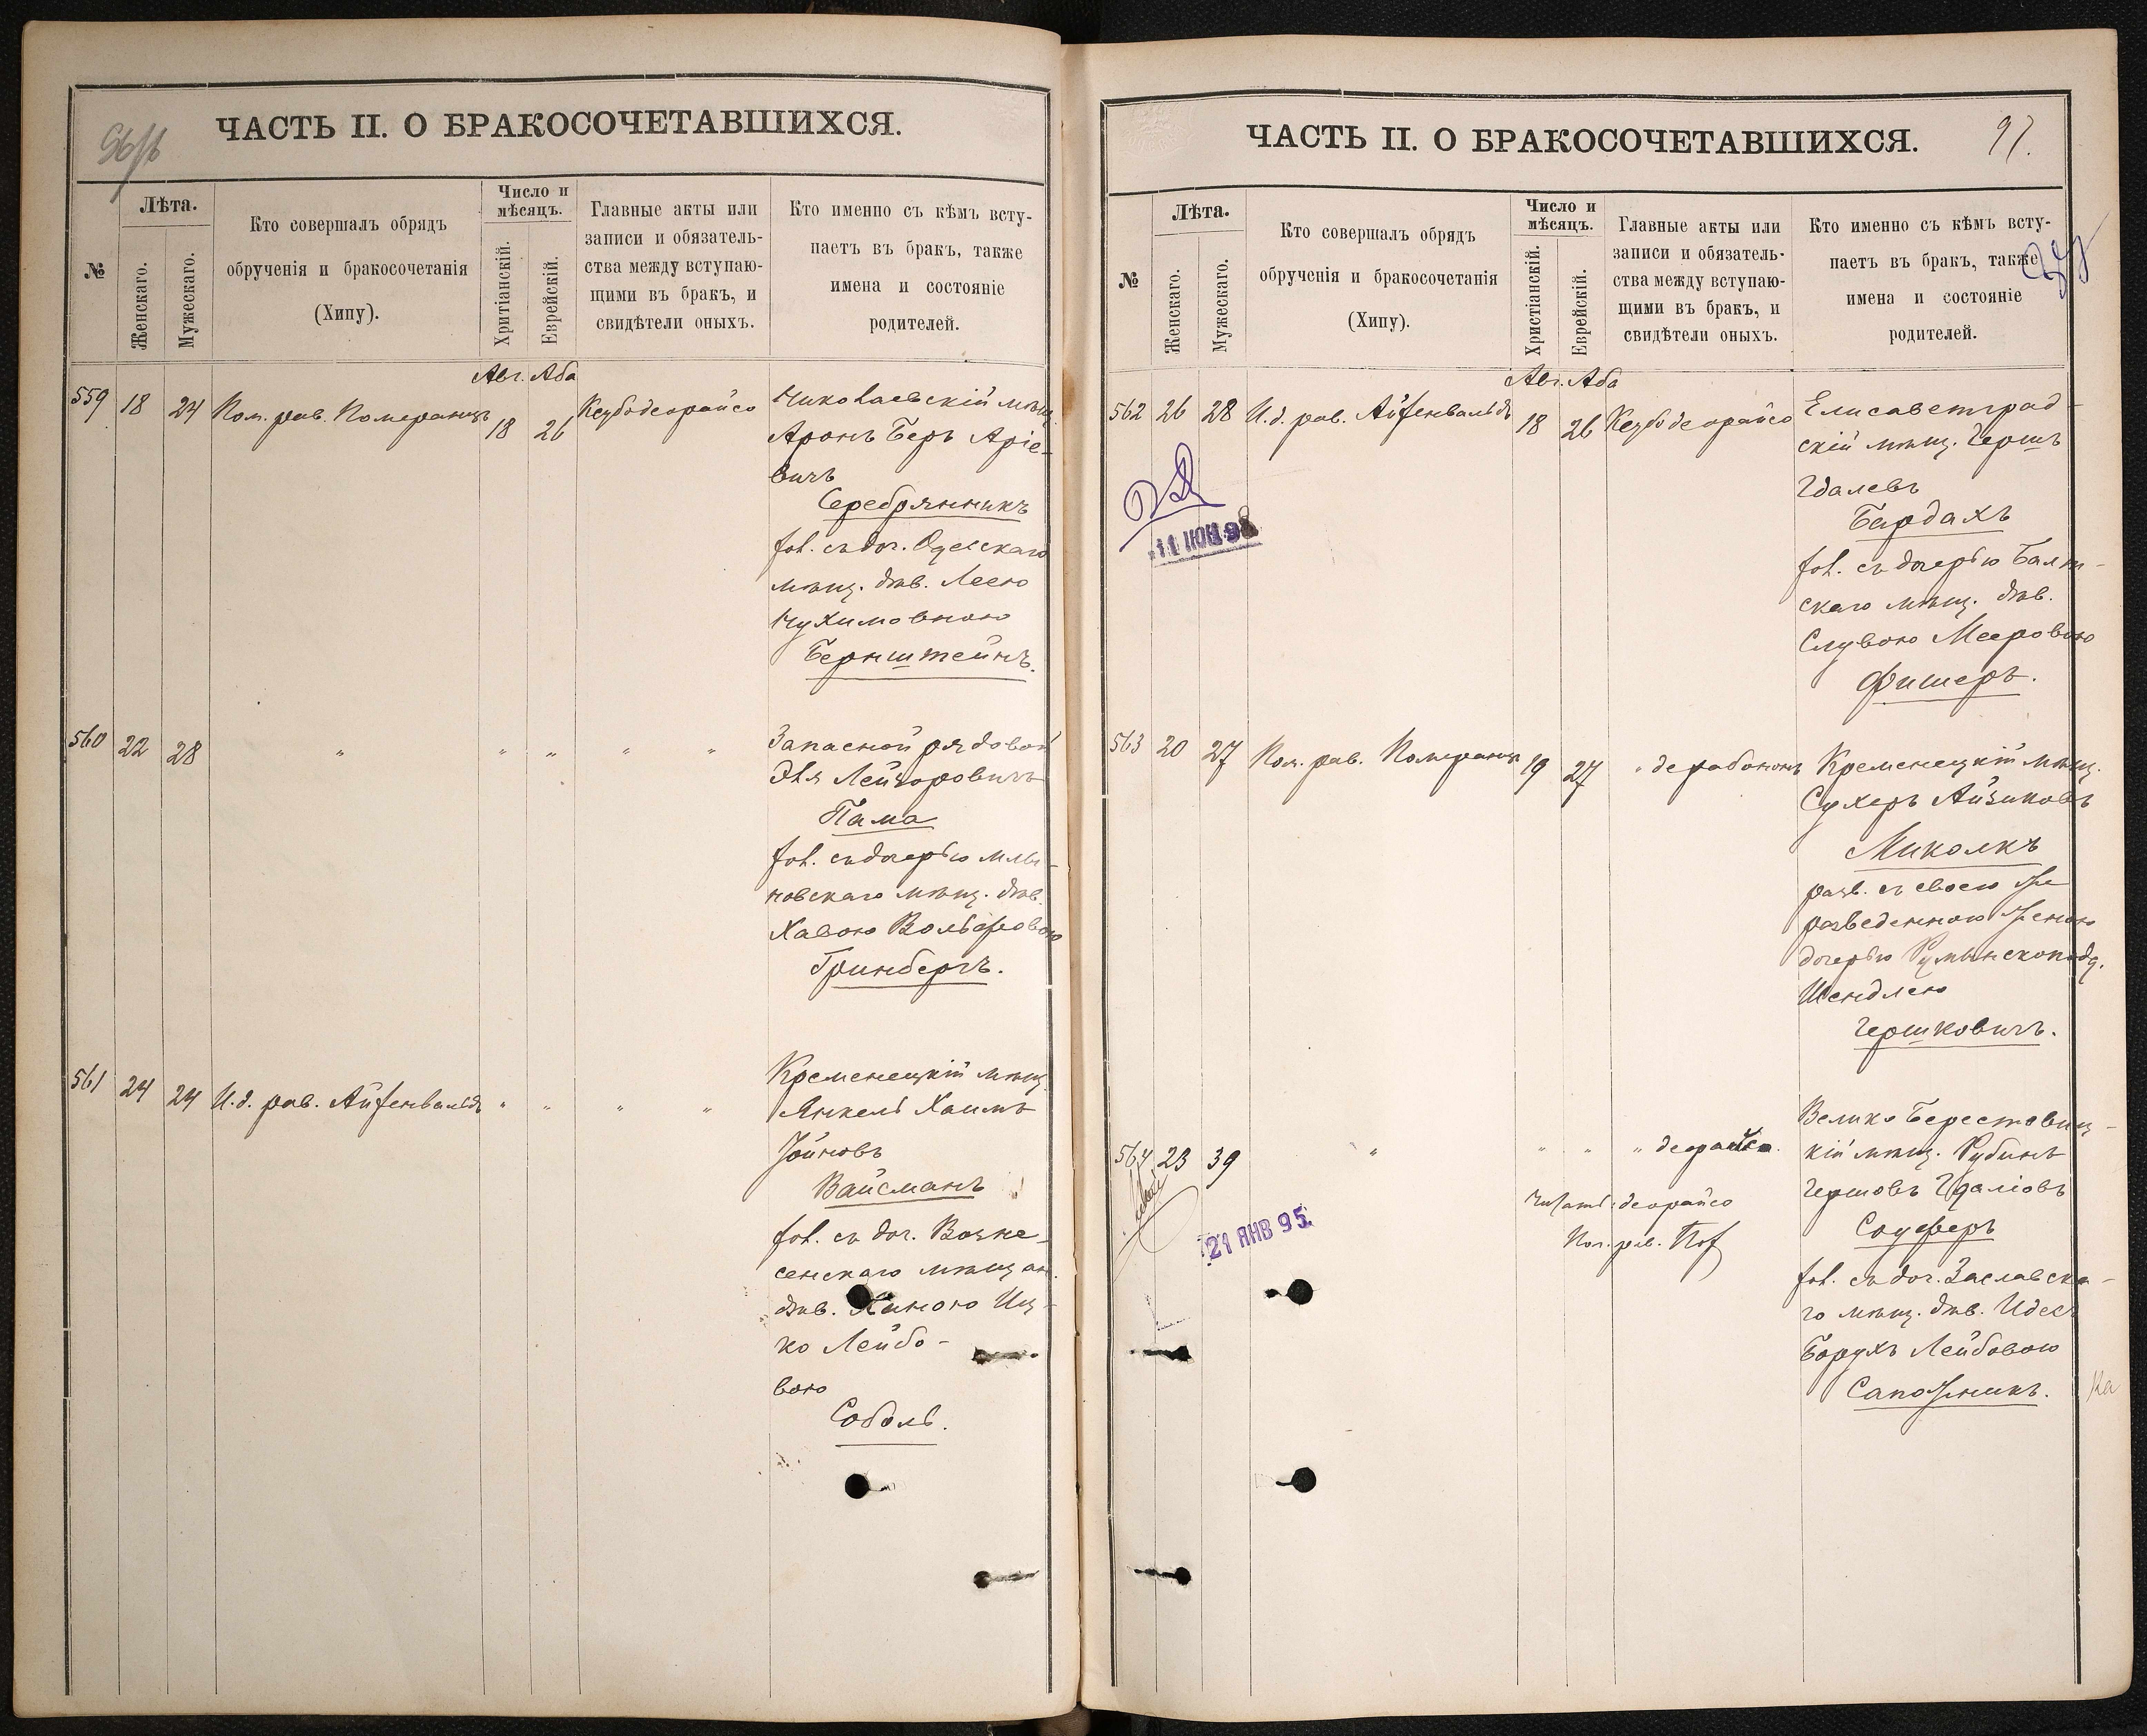 ЧАСТЬ II. О БРАКОСОЧЕТАВШИХСЯ.
№
Лѣта.
Женскаго.
Мужескаго.
Кто совершалъ обрядъ
обрученія и бракосочетанія
(Хипу).
Число и
мѣсяцъ.
Хритіанскій.
Еврейскій.
Главные акты или
записи и обязатель-
ства между вступаю-
щими въ бракъ, и
свидѣтели оныхъ.
Кто именно съ кѣмъ всту-
паетъ въ бракъ, также
имена и состояніе
родителей.
Авг. Аба
559 18 24 Пом. рав. Померанцъ 18 26 Кезубо деорайсо
Николаевскій мѣщ.
Аронъ Беръ Аріе-
вичъ
Серебрянникъ
хол. съ доч. Одесскаго
мѣщ. дѣв. Леею
Нухимовною
Бернштейнъ.
560 22 28 " " " " "
Запасной рядовой
Эля Лейзоровичъ
Пама
хол. съ дочерью
новскаго мѣщ. дѣв.
Хавою Вольфовою
Гринбергъ.
561 24 24 И.д. рав. Айзенвальдъ " " " "
Кременецкій мѣщ.
Янкель Хаимъ
Іойновъ
Вайсманъ
хол. съ доч. Возне-
сенскаго мѣщан.
дѣв. Ханою Иц-
ко Лейбо-
вою
Соболь.
ЧАСТЬ II. О БРАКОСОЧЕТАВШИХСЯ.
97.
№
Лѣта.
Женскаго.
Мужескаго.
Кто совершалъ обрядъ
обрученія и бракосочетанія
(Хипу).
Число и
мѣсяцъ.
Христіанскій.
Еврейскій.
Главные акты или
записи и обязатель-
ства между вступаю-
щими въ бракъ, и
свидѣтели оныхъ.
Кто именно съ кѣмъ всту-
паетъ въ бракъ, также
имена и состояніе
родителей.
Авг. Аба
562 26 28 И.д. рав. Айзенвальдъ 18 26 Кезубо деорайсо
Елисаветград-
скій мѣщ. Гершъ
Гдалевъ
Бардахъ
хол. съ дочерью Балт-
скаго мѣщ. дѣв.
Слувою Мееровою
Фишеръ.
11 ИЮН 98
563 20 27 Пом. рав. Померанцъ 19 27 " дерабононъ
Кременецкій мѣщ.
Сухеръ Айзиковъ
Миколкъ
разв. съ своею же
разведенною женою
дочерью Румынскоподд.
Шендлею
Гершковичъ.
564 23 39 " " " " деорайсо.
Читать: деорайсо
Пом. рав.
21 ЯНВ 95.
Велико Берестовиц-
кій мѣщ. Рубинъ
Гершовъ Гдаліовъ
Соуферъ
хол. съ доч. Заславска-
го мѣщ. дѣв. Идесъ
Борухъ Лейбовою
Сапожникъ.